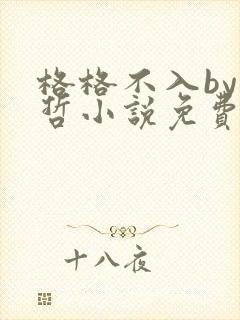 格格不入by
哲小說免費
十八夜